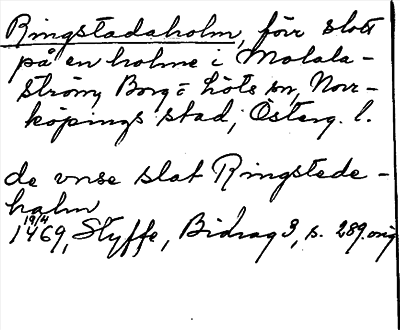 Ringstadaholm, förr slott
på en holme i Motala-
ström, Borg = Löts sn, Norr-
köpings stad, Österg. l.
de vnse slat Ringstede-
halm
19/4
1469, Styffe, Bidrag 3, s. 289. orig